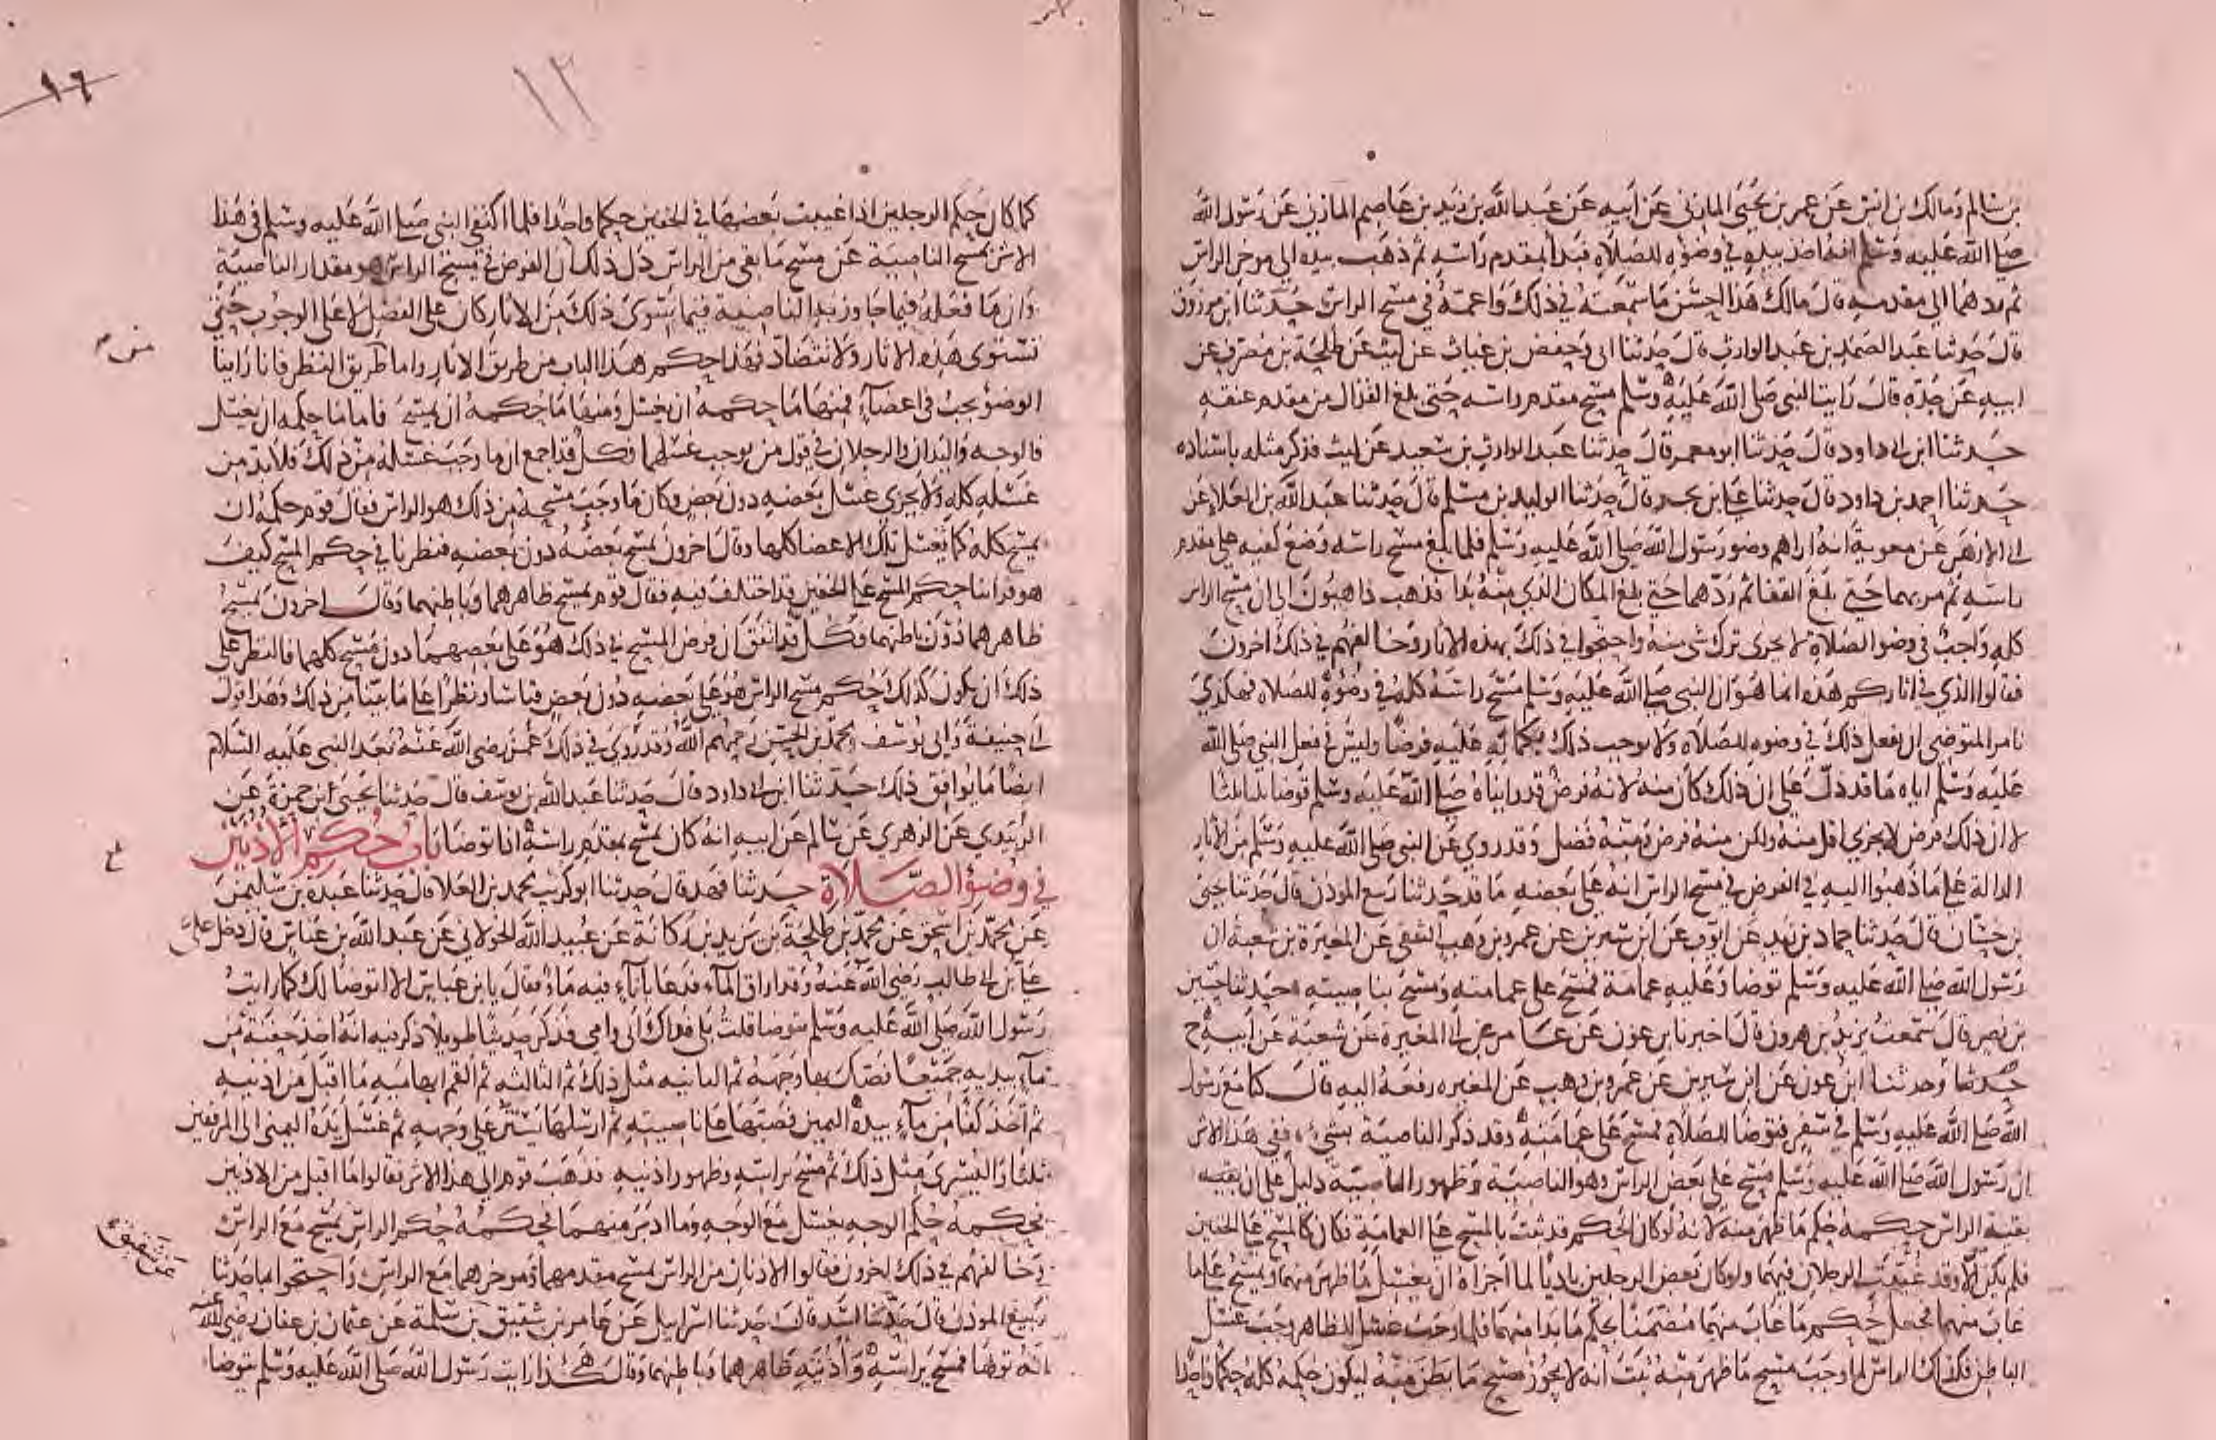 بن سالم ومالك بن انس عن عمر بن يحيى المازنى عن ابيه عن عبد الله بن زيد بن عاصم المازنى عن رسول الله
صلى الله عليه وسلم انه اخذ بيده فى وضوه للصلاه فبدا بمقدم راسه ثم ذهب بيده الى موخر الراس
ثم ردهما الى مقدمه قال مالك هذا احسن ما سمعته فى ذلك واعمه فى مسح الراس حدثنا ابن مرزوق
قال حدثنا عبد الصمد بن عبد الوارث قال حدثنا ابى وحفص بن غياث عن ليث عن طلحة بن مصرف عن
ابيه عن جده قال رايت النبى صلى الله عليه وسلم مسح مقدم راسه حتى بلغ القذال من مقدم عنقه
حدثنا ابن ابى داود قال حدثنا ابو معمر قال حدثنا عبد الوارث بن سعيد عن ليث فذكر مثله باسناده
حدثنا احمد بن داود قال حدثنا على بن بحر قال حدثنا الوليد بن مسلم قال حدثنا عبد الله بن العلا عن
ابى الازهر عن معوية انه اراهم وضو رسول الله صلى الله عليه وسلم فلما بلغ مسح راسه وضع كفيه على مقدم
راسه ثم مر بهما حتى بلغ القفا ثم ردهما حتى بلغ المكان الذى منه بدا فذهب ذاهبون الى ان مسح الراس
كله واجب فى وضو الصلاة لا يجزى ترك شى منه واحتجوا فى ذلك بهذه الاثار وخالفهم فى ذلك اخرون
فقالوا الذى فى اثاركم هذه انما هو ان النبى صلى الله عليه وسلم مسح راسه كله فى وضوه للصلاه فهكذى
نامر المتوضى ان يفعل ذلك فى وضوه للصلاه ولا نوجب ذلك بكماله عليه فرضا وليس فى فعل النبى صلى الله
عليه وسلم اياه ما قد دل على ان ذلك كان منه لانه فرض قد رايناه صلى الله عليه وسلم توضا ثلثا ثلثا
لا ان ذلك فرض لا يجزى اقل منه ولكن منه فرض ومنه فضل وقد روى عن النبى صلى الله عليه وسلم من الاثار
الدالة على ما ذهبوا اليه فى الفرض فى مسح الراس انه على بعضه ما قد حدثنا ربيع الموذن قال حدثنا يحيى
بن حسان قال حدثنا حماد بن زيد عن ايوب عن ابن سيرين عن عمرو بن وهب الثقفى عن المغيرة بن شعبة ان
رسول الله صلى الله عليه وسلم توضا وعليه عمامة فمسح على عمامته ومسح بناصيته حدثنا حسين
بن نصر قال سمعت يزيد بن هرون قال اخبرنا ابن عون عن عامر عن ابن المغيرة عن شعبة عن ابيه ح
حدثنا وحدثنا ابن عون عن ابن سيرين عن عمرو بن وهب عن المغيره رفعه اليه قال كنا مع رسول
الله صلى الله عليه وسلم فى سفر فتوضا للصلاة فمسح على عمامته وقد ذكر الناصية بشىء ففى هذا الاثر
ان رسول الله صلى الله عليه وسلم مسح على بعض الراس وهو الناصية وظهور الناصية دليل على ان بقيه
بقية الراس حكمه حكم ما ظهر منه لانه لو كان الحكم قد ثبت بالمسح على العمامة لكان كالمسح على الخفين
فلم يكن الا وقد غيبت الرجلان فيهما ولو كان بعض الرجلين باديا لما اجزاه ان يغسل ما ظهر منهما ويمسح على ما
غاب منهما فجعل حكم ما غاب منهما مضمنا بحكم ما بدا منهما فلما وجب غسل الظاهر وجب غسل
الباطن فكذلك الراس لما وجب مسح ما ظهر منه ثبت انه لا يجوز مسح ما بطن منه ليكون حكمه كله حكما واحدا
١٦
١٢
كما كان حكم الرجلين اذا غيبت بعضها فى الخفين حكما واحدا فلما اكتفى النبى صلى الله عليه وسلم فى هذا
الاثر بمسح الناصية عن مسح ما بقى من الراس دل ذلك ان الفرض فى مسح الراس هو مقدار الناصية
وان ما فعله فيما جاوز به الناصية فيما سوى ذلك من الاثار كان على الفضل لا على الوجوب حتى
تستوى هذه الاثار ولا تتضاد فهذا حكم هذا الباب من طريق الاثار واما طريق النظر فانا راينا
الوضو يجب فى اعضآء فمنها ما حكمه ان يغسل ومنها ما حكمه ان يمسح فاما ما حكمه ان يغسل
فالوجه واليدان والرجلان فى قول من يوجب غسلهما وكل قد اجمع ان ما وجب غسله من ذلك فلا بد من
غسله كله ولا يجزى غسل بعضه دون بعض وكان ما وجب مسحه من ذلك هو الراس فقال قوم حكمه ان
يمسح كله كما تغسل تلك الاعضا كلها وقال اخرون يمسح بعضه دون بعضه فنظرنا فى حكم المسح كيف
هو فراينا حكم المسح على الخفين قد اختلف فيه فقال قوم يمسح ظاهرهما وباطنهما وقال اخرون يمسح
ظاهرهما دون باطنهما وكل قد اتفق ان فرض المسح فى ذلك هو على بعضهما دون مسح كلهما فالنظر على
ذلك ان يكون كذلك حكم مسح الراس هو على بعضه دون بعض قياسا ونظرا على ما بينا من ذلك وهذا قول
ابى حنيفة وابى يوسف ومحمد بن الحسن رحمهم الله وقد روى فى ذلك عمن رضى الله عنه بعد النبى عليه السلام
ايضا ما يوافق ذلك حدثنا ابن ابى داود قال حدثنا عبد الله بن يوسف قال حدثنا يحيى ابن حمزة عن
الزبيدى عن الزهرى عن سالم عن ابيه انه كان يمسح بمقدم راسه اذا توضا باب حكم الاذنين
فى وضوء الصلاة حدثنا فهد قال حدثنا ابو كريب محمد بن العلا قال حدثنا عبده بن سليمن
عن محمد بن اسحق عن محمد بن طلحة بن يزيد بن ركانة عن عبيد الله الخولانى عن عبد الله بن عباس قال دخل على
على بن ابى طالب رضى الله عنه وقد اراق المآء فدعا باناء فيه ماء فقال يا بن عباس الا اتوضا لك كما رايت
رسول الله صلى الله عليه وسلم يتوضا قلت بلى فداك ابى وامى فذكر حديثا طويلا ذكر فيه انه اخذ حفنة من
مآء بيديه جميعا فصك بها وجهه ثم الثانيه مثل ذلك ثم الثالثه ثم القم ابهاميه ما اقبل من اذنيه
ثم اخذ كفا من مآء بيده اليمين فصبها على ناصيته ثم ارسلها تستن على وجهه ثم غسل يده اليمنى الى المرفقين
ثلثا واليسرى مثل ذلك ثم مسح براسه وظهور اذنيه فذهب قوم الى هذا الاثر فقالوا ما اقبل من الاذنين
فحكمه حكم الوجه يغسل مع الوجه وما ادبر منهما فحكمه حكم الراس يمسح مع الراس
وخالفهم فى ذلك اخرون فقالوا الاذنان من الراس يمسح مقدمهما وموخرهما مع الراس واحتجوا بما حدثنا
ربيع الموذن قال حدثنا اسد قال حدثنا اسرايل عن عامر بن شقيق بن سلمة عن عثمان بن عفان رضى الله عنه
انه توضا فمسح براسه واذنيه ظاهرهما وباطنهما وقال هكذا رايت رسول الله صلى الله عليه وسلم يتوضا
عن شقيق